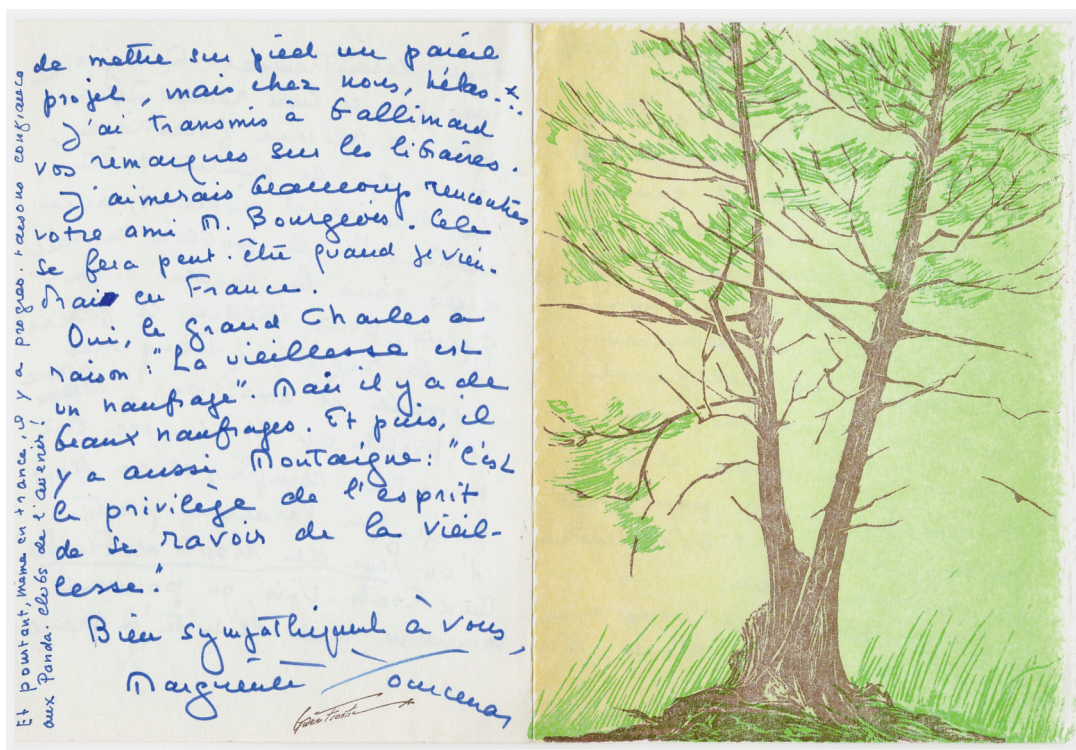 de mettre sur pied un pareil
projet, mais chez nous, hélas. ×.
J'ai transmis à Gallimard
vos remarques sur les libraires.
J'aimerais beaucoup rencontrer
votre ami M. Bourgeois. Cela
se fera peut-être quand je vien-
drai en France.
Oui, le grand Charles a
raison : "La vieillesse est
un naufrage". Mais il y a de
beaux naufrages. Et puis, il
y a aussi Montaigne : "C'est
le privilège de l'esprit
de se ravoir de la vieil-
lesse."
Bien sympathiquement à vous,
Marguerite Yourcenar
Et pourtant, même en France, il y a progrès. Faisons confiance
aux Panda-clubs de l'avenir !